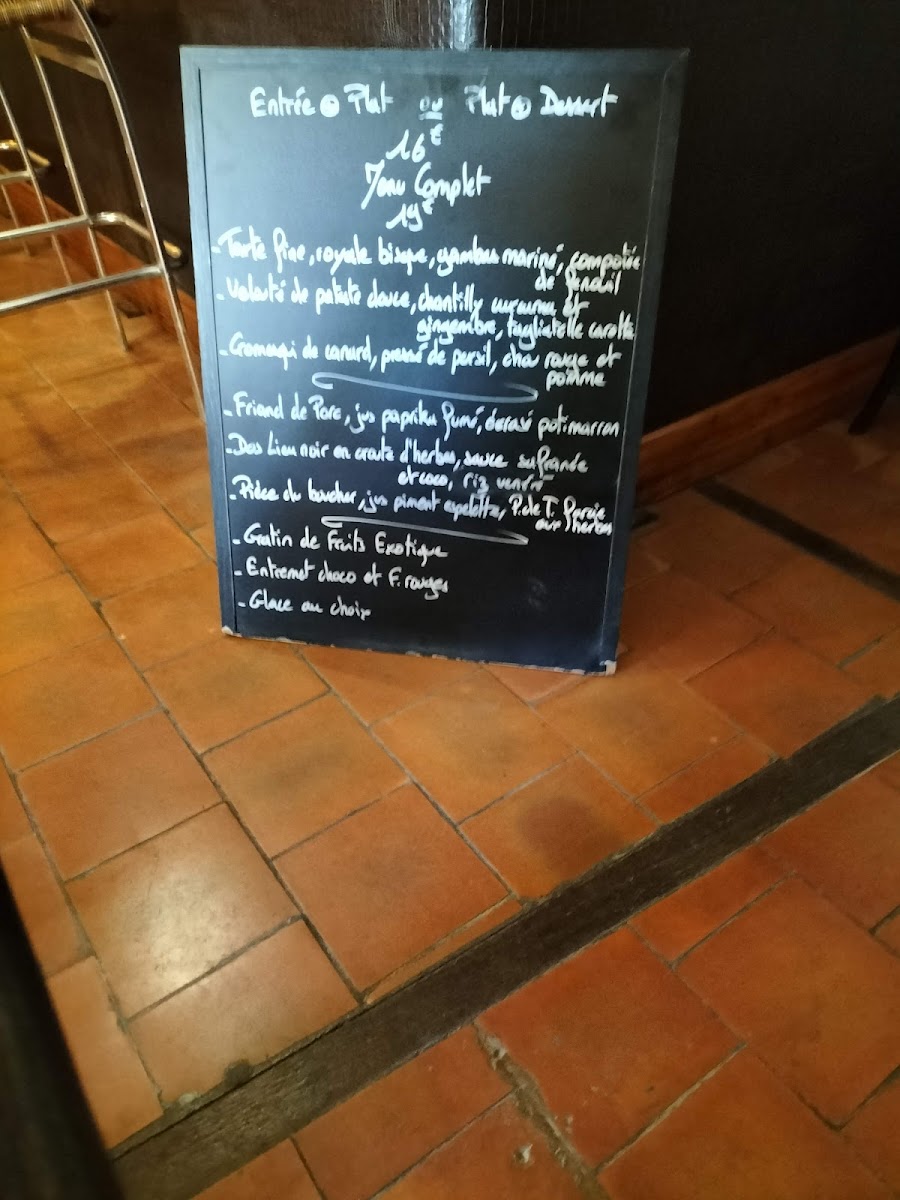 Entrée + Plat ou Plat + Dessert
16€
Menu Complet
19€
- Tarte fine, royale bisque, gambas mariné, compotée
de fenouil
- Velouté de patate douce, chantilly curcuma et
gingembre, tagliatelle carotte
- de canard, pressé de persil, chou rouge et
pomme
- Friand de Porc, jus paprika fumé, écrasé potimarron
- Dos Lieu noir en croute d'herbes, sauce safranée
et coco, riz vénéré
- Pièce du boucher, jus piment espelette, P.de T. Persie
aux herbes
- Gratin de Fruits Exotique
- Entremet choco et F. rouges
- Glace au choix